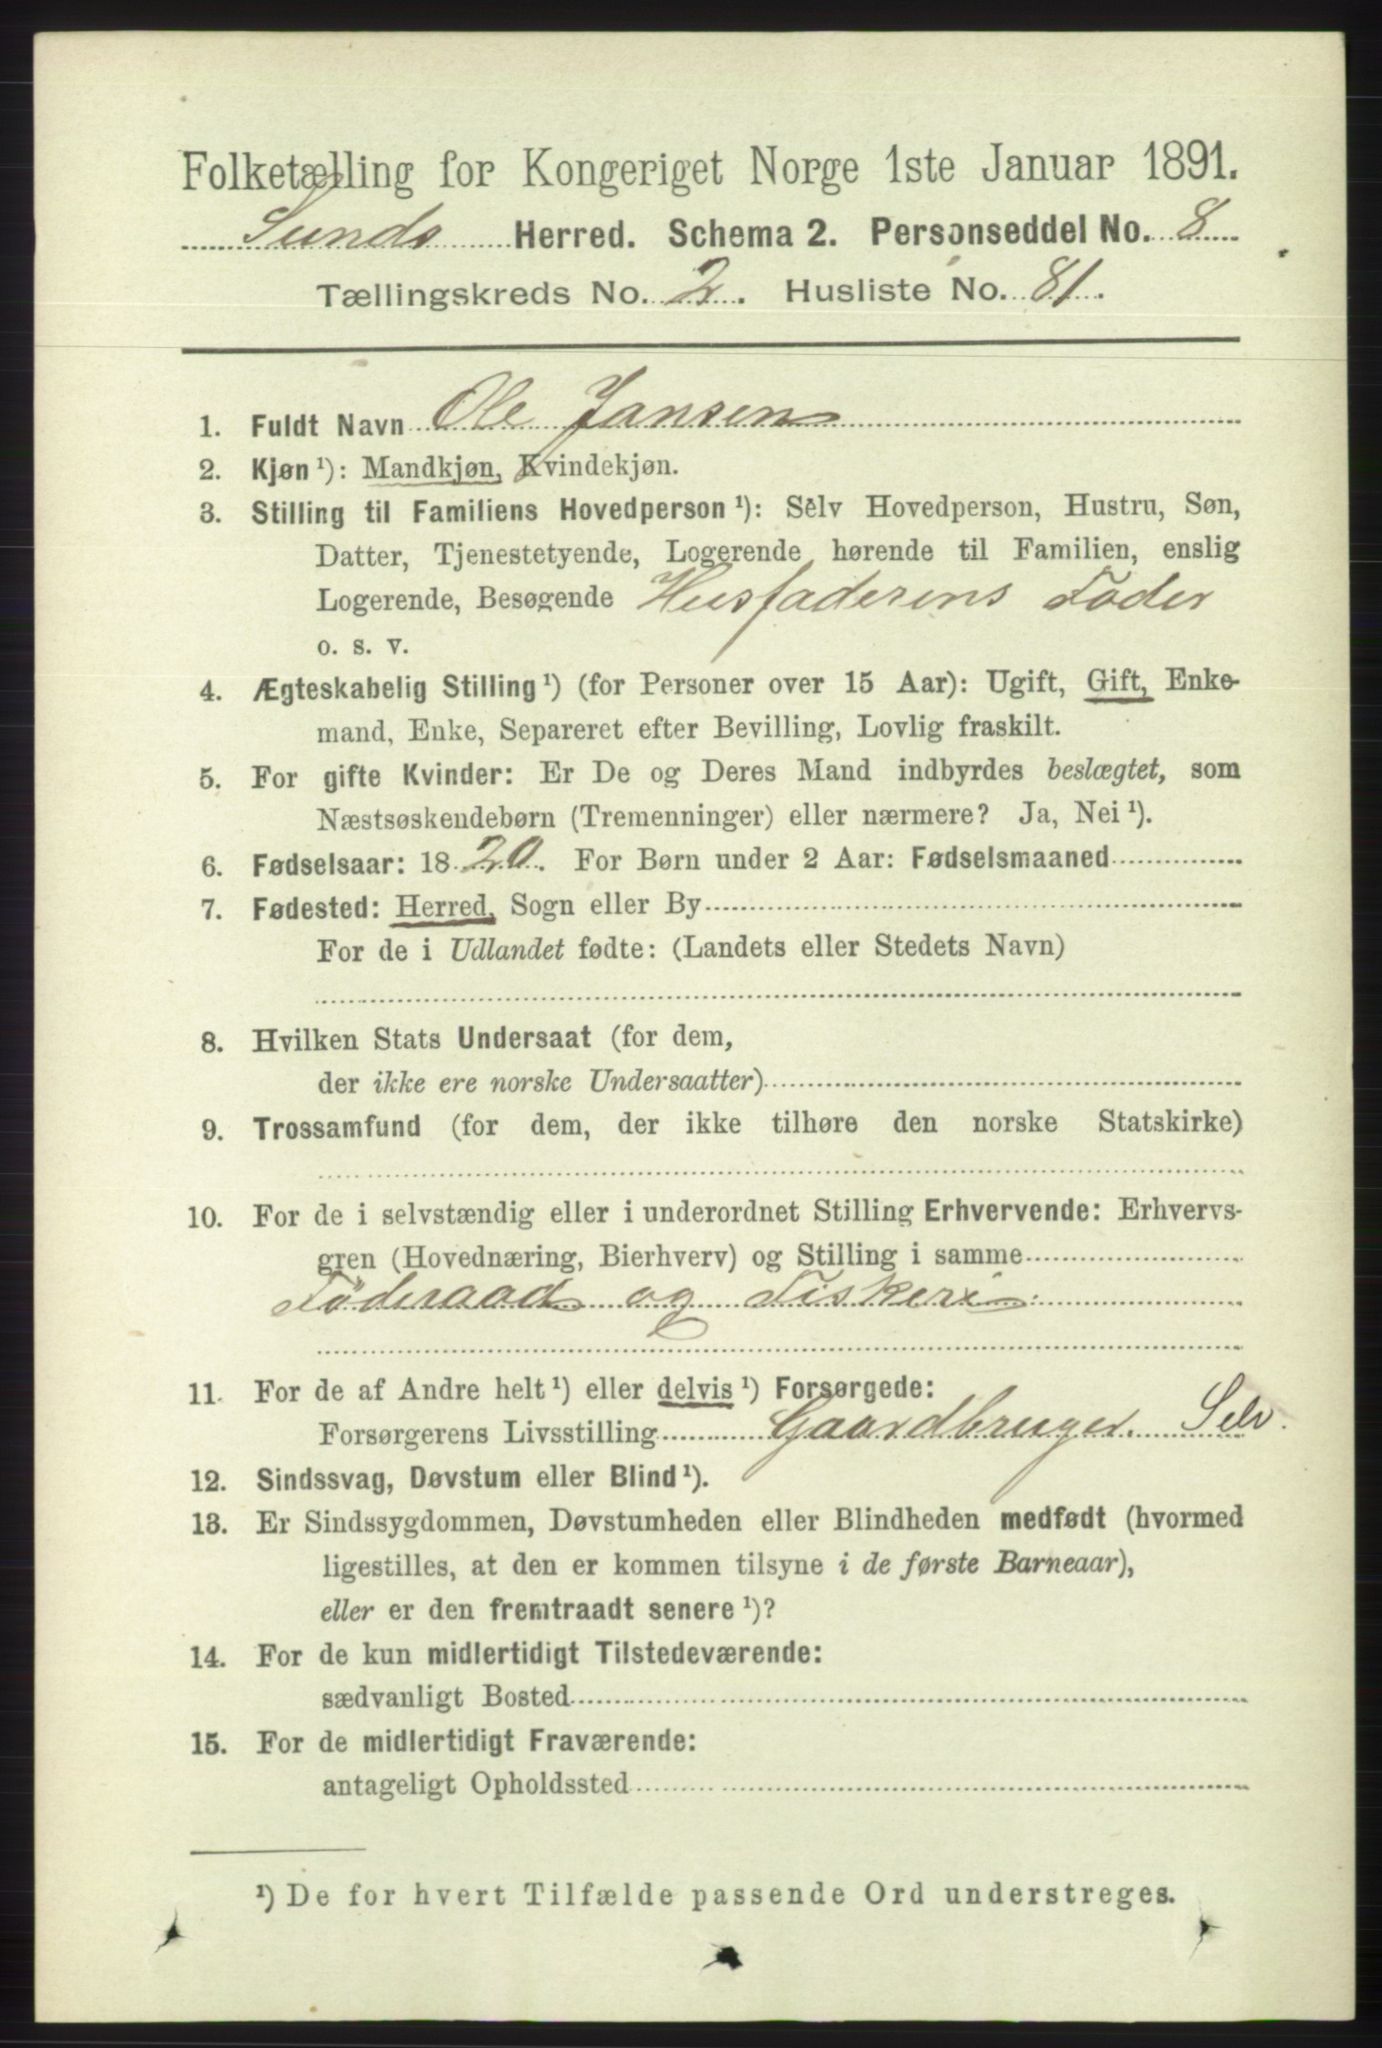 Folketælling for Kongeriget Norge 1ste Januar 1891.
Sunds Herred. Schema 2. Personseddel No. 8
Tællingskreds No. 2. Husliste No. 81.
1. Fuldt Navn Ole Jansen
2. Kjøn ¹): Mandkjøn, Kvindekjøn.
3. Stilling til Familiens Hovedperson ¹): Selv Hovedperson, Hustru, Søn,
Datter, Tjenestetyende, Logerende hørende til Familien, enslig
Logerende, Besøgende Husfaderens Fader
o. s. v.
4. Ægteskabelig Stilling ¹) (for Personer over 15 Aar): Ugift, Gift, Enke-
mand, Enke, Separeret efter Bevilling, Lovlig fraskilt.
5. For gifte Kvinder: Er De og Deres Mand indbyrdes beslægtet, som
Næstsøskendebørn (Tremenninger) eller nærmere? Ja, Nei ¹).
6. Fødselsaar: 1820. For Børn under 2 Aar: Fødselsmaaned
7. Fødested: Herred, Sogn eller By
For de i Udlandet fødte: (Landets eller Stedets Navn)
8. Hvilken Stats Undersaat (for dem,
der ikke ere norske Undersaatter)
9. Trossamfund (for dem, der ikke tilhøre den norske Statskirke)
10. For de i selvstændig eller i underordnet Stilling Erhvervende: Erhvervs-
gren (Hovednæring, Bierhverv) og Stilling i samme
Föderaad og Fiskeri.
11. For de af Andre helt ¹) eller delvis ¹) Forsørgede:
Forsørgerens Livsstilling Gaardbruger. Selv.
12. Sindssvag, Døvstum eller Blind ¹).
13. Er Sindssygdommen, Døvstumheden eller Blindheden medfødt (hvormed
ligestilles, at den er kommen tilsyne i de første Barneaar),
eller er den fremtraadt senere ¹)?
14. For de kun midlertidigt Tilstedeværende:
sædvanligt Bosted
15. For de midlertidigt Fraværende:
antageligt Opholdssted
¹) De for hvert Tilfælde passende Ord understreges.